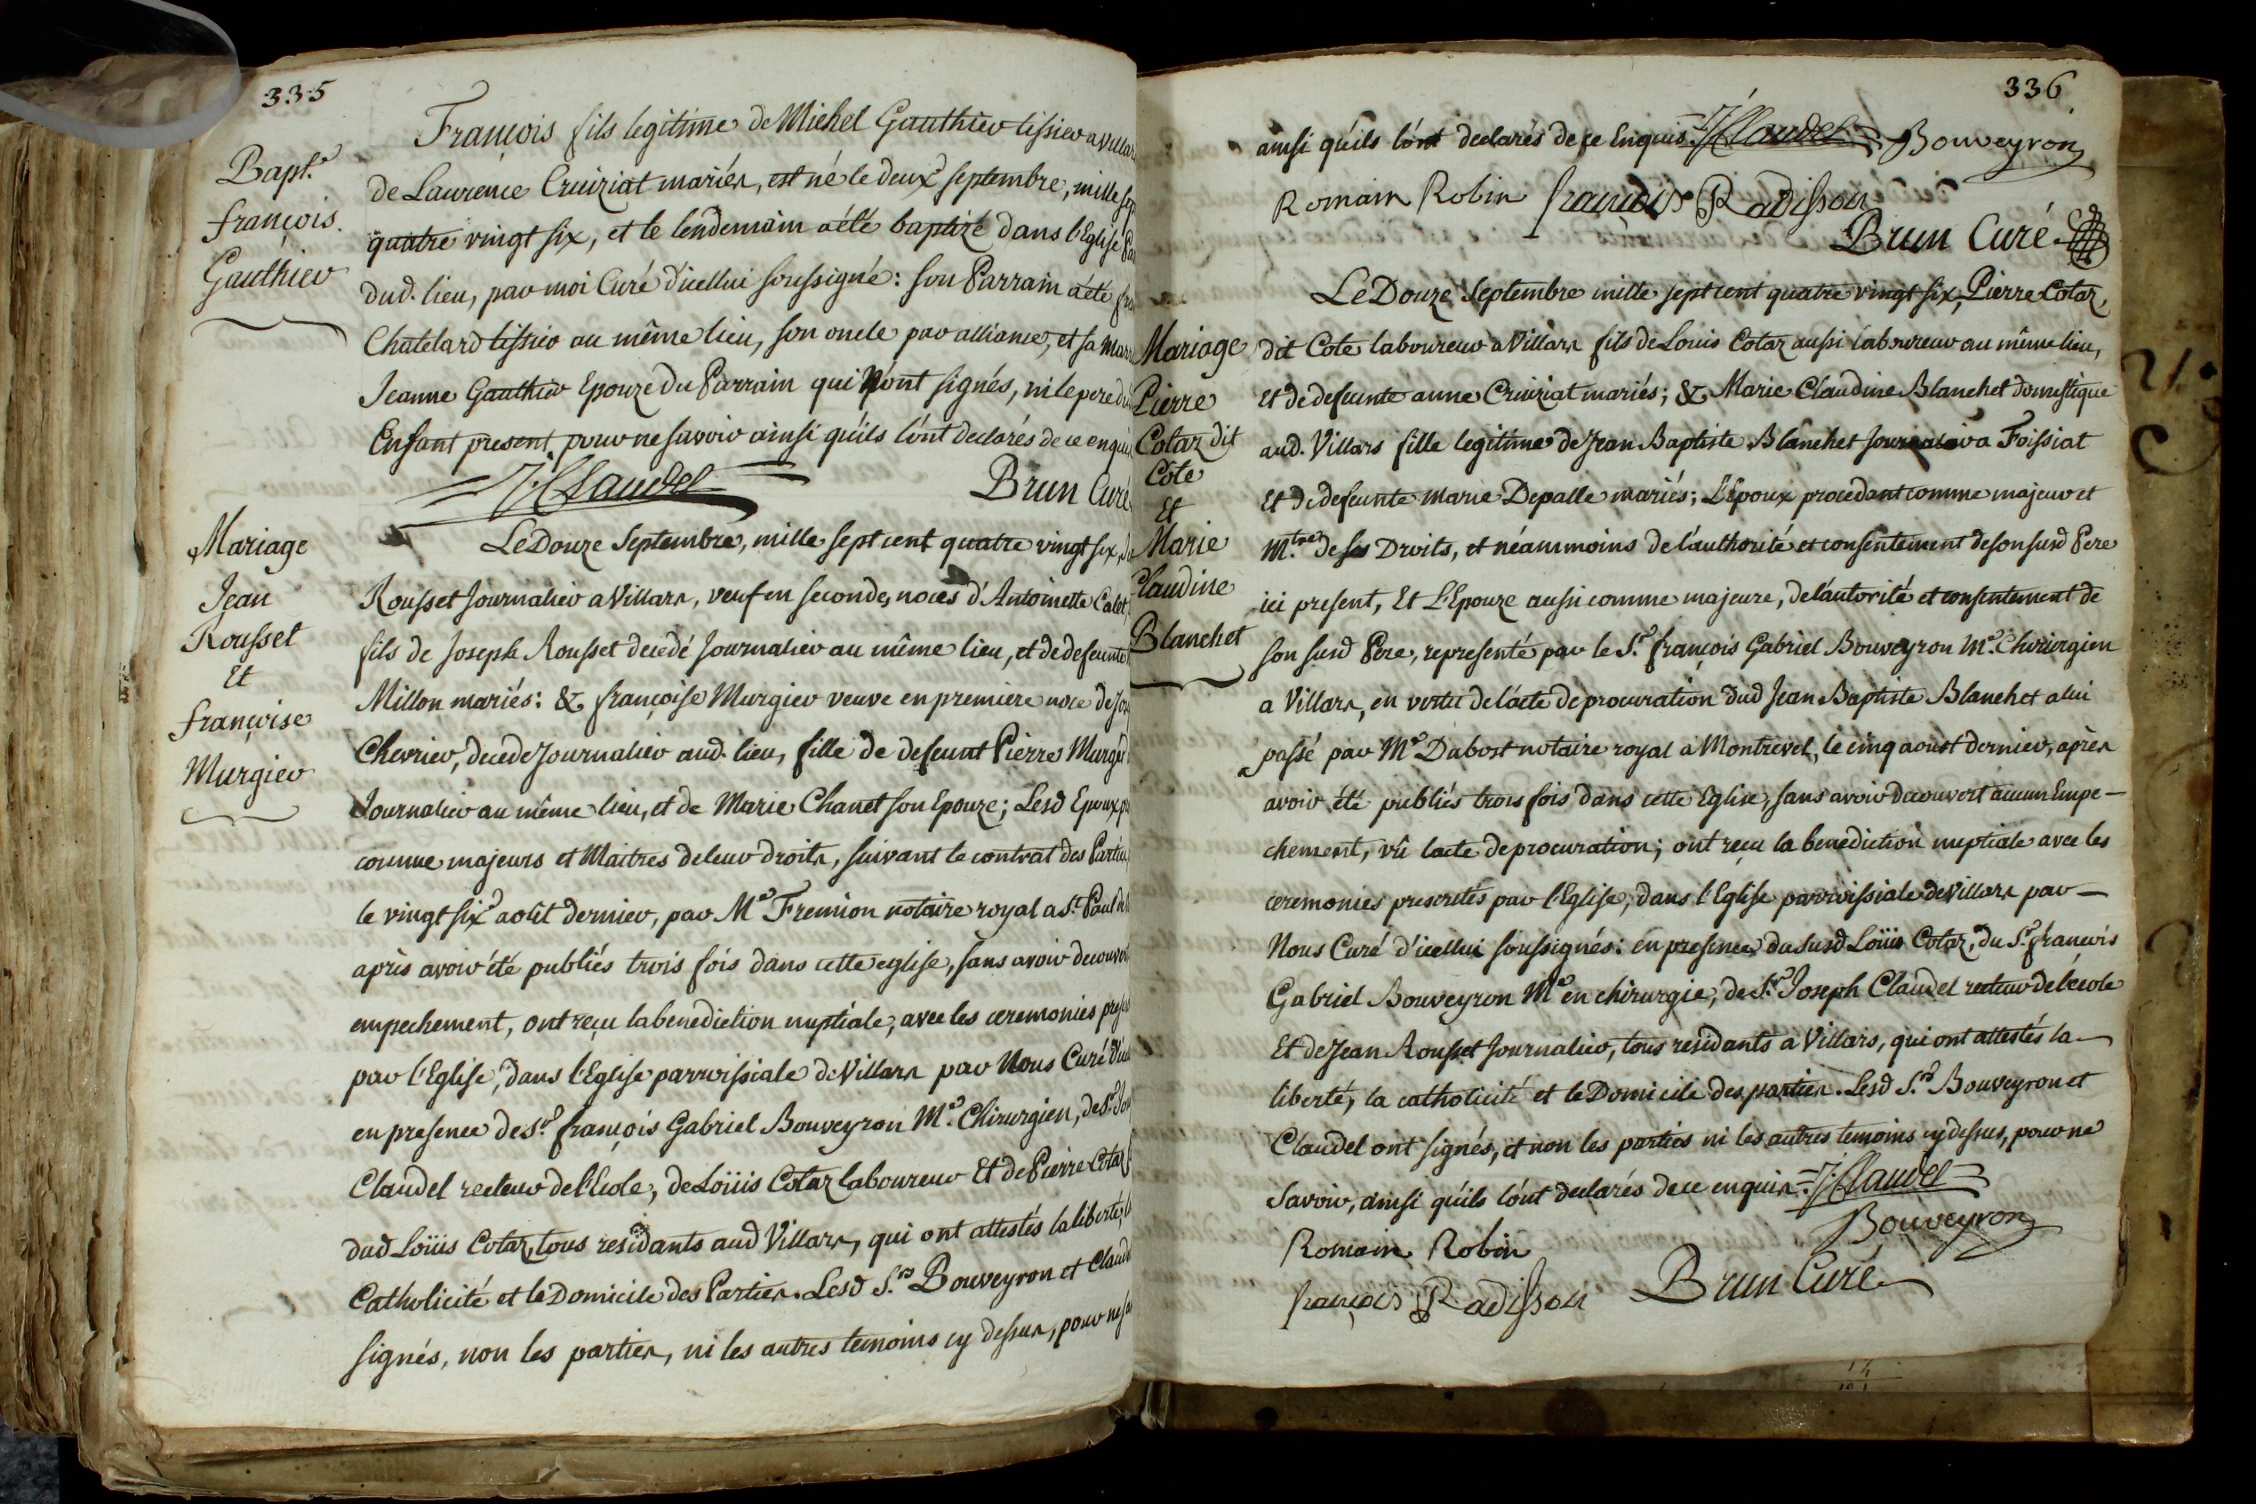 335
Bapt.e
françois.
Gauthier
François fils legitime de Michel Gauthier tissier a villars
de Laurence Cruiziat mariés, est né le deux.e septembre, mille sep
quatre vingt six, et le lendemain a été baptizé dans l'Eglise Pa
dud. lieu, par moi Curé d'icellui soussigné: son Parrain a été fra
Chatelard tissier au même lieu, son oncle par alliance, et sa Marr
Jeanne Gauthier Epouze du Parrain qui N'ont signés, ni le pere du
Enfant present, pour ne savoir ainsi qu'ils l'ont declarés de ce enquis
J. Claudel
Brun Curé
Mariage
Jean
Rousset
Et
françoise
Murgier
Le Douze Septembre, mille sept cent quatre vingt six,
Rousset Journalier a Villars, veuf en secondes noces d'Antoinette Calet,
fils de Joseph Rousset decedé Journalier au même lieu, et de defeunte
Millon mariés: & françoise Murgier veuve en premiere noce de Jos
Chevrier, decede Journalier aud. lieu, fille de defeunt Pierre Murgie
Journalier au même lieu, et de Marie Chanet son Epouze; Lesd Epoux, p
comme majeurs et Maitres de leur droits, suivant le contrat des Parties,
le vingt six.e août dernier, par M.e Fremion notaire royal a S.t Paul de
après avoir été publiés trois fois dans cette eglise, sans avoir decouver
empechement, ont reçu la benediction nuptiale, avec les ceremonies pres
par l'Eglise, dans l'Eglise parroissiale de Villars par Nous Curé d'ic
en presence de S.r françois Gabriel Bouveyron M.e Chirurgien, de S.r Jos
Claudel recteur de l'Ecole, de Loüis Cotaz laboureur Et de Pierre Cotaz f
dud Loüis Cotaz, tous residants aud Villars, qui ont attestés la liberté, la
Catholicité et le Domicile des Parties. Lesd S.rs Bouveyron et Claud
signés, non les parties, ni les autres temoins cy dessus, pour ne sa
336
ainsi qu'ils l'ont declarés de ce Enquis. J. Claudel Bouveyron
Romain Robin françois Radisson
Brun Curé
Mariage
Pierre
Cotaz dit
Cote
Et
Marie
Claudine
Blanchet
Le Douze Septembre mille sept cent quatre vingt six, Pierre Cotaz,
dit Cote laboureur a Villars fils de Louis Cotaz aussi laboureur au même lieu,
et de defeunte anne Cruiziat mariés; & Marie Claudine Blanchet domestique
aud. Villars fille legitime de Jean Baptiste Blanchet Journalier a Foissiat
et de defeunte marie Depalle mariés; L'Epoux procedant comme majeur et
M.tre de ses Droits, et néammoins de l'authorité et consentement de son susd Pere
ici present, Et L'Epouze aussi comme majeure, de l'autorité et consentement de
son susd Pere, representé par le S.r françois Gabriel Bouveyron M.e Chirurgien
a Villars, en vertu de l'acte de procuration dud Jean Baptiste Blanchet a lui
passé par M.e Dabost notaire royal a Montrevel, le cinq aoust dernier, après
avoir été publiés trois fois dans cette Eglise, sans avoir decouvert aucun Empe-
chement, vû l'acte de procuration; ont reçu la benediction nuptiale avec les
ceremonies prescrites par l'Eglise, dans l'Eglise parroissiale de Villars par
Nous Curé d'icellui soussignés: en presence du susd Loüis Cotaz, du S.r francois
Gabriel Bouveyron M.e en chirurgie, de S.r Joseph Claudel recteur de l'ecole
Et de Jean Rousset Journalier, tous residants a Villars, qui ont attestés la
liberté, la catholicité et le Domicile des parties. Lesd S.rs Bouveyron et
Claudel ont signés, et non les parties ni les autres temoins cy dessus, pour ne
savoir, ainsi qu'ils l'ont declarés de ce enquis. J. Claudel
Bouveyron
Romain Robin
françois Radisson Brun Curé